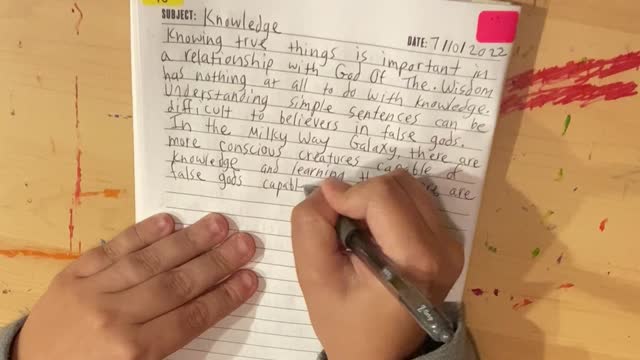 SUBJECT: Knowledge
DATE: 7/10/2022
Knowing true things is important in
a relationship with God Of The Wisdom
has nothing at all to do with knowledge.
Understanding simple sentences can be
difficult to believers in false gods.
In the Milky Way Galaxy, there are
more conscious creatures capable of
knowledge and learning are
false gods capabl